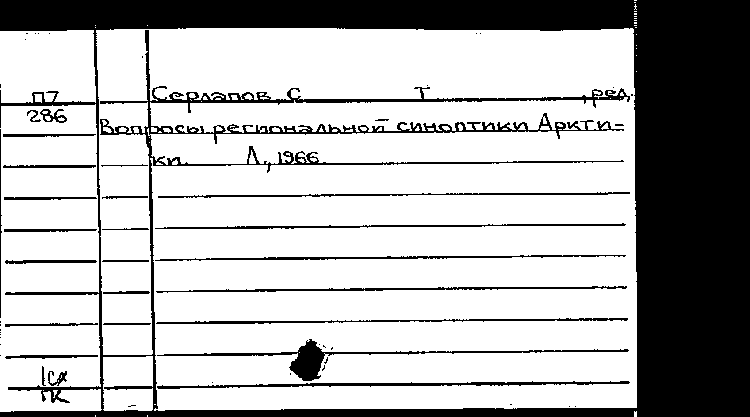 П7
286
Серлапов, С Т , ред.
Вопросы региональной синоптики Аркти=
ки. Л., 1966.
1сх
ГК